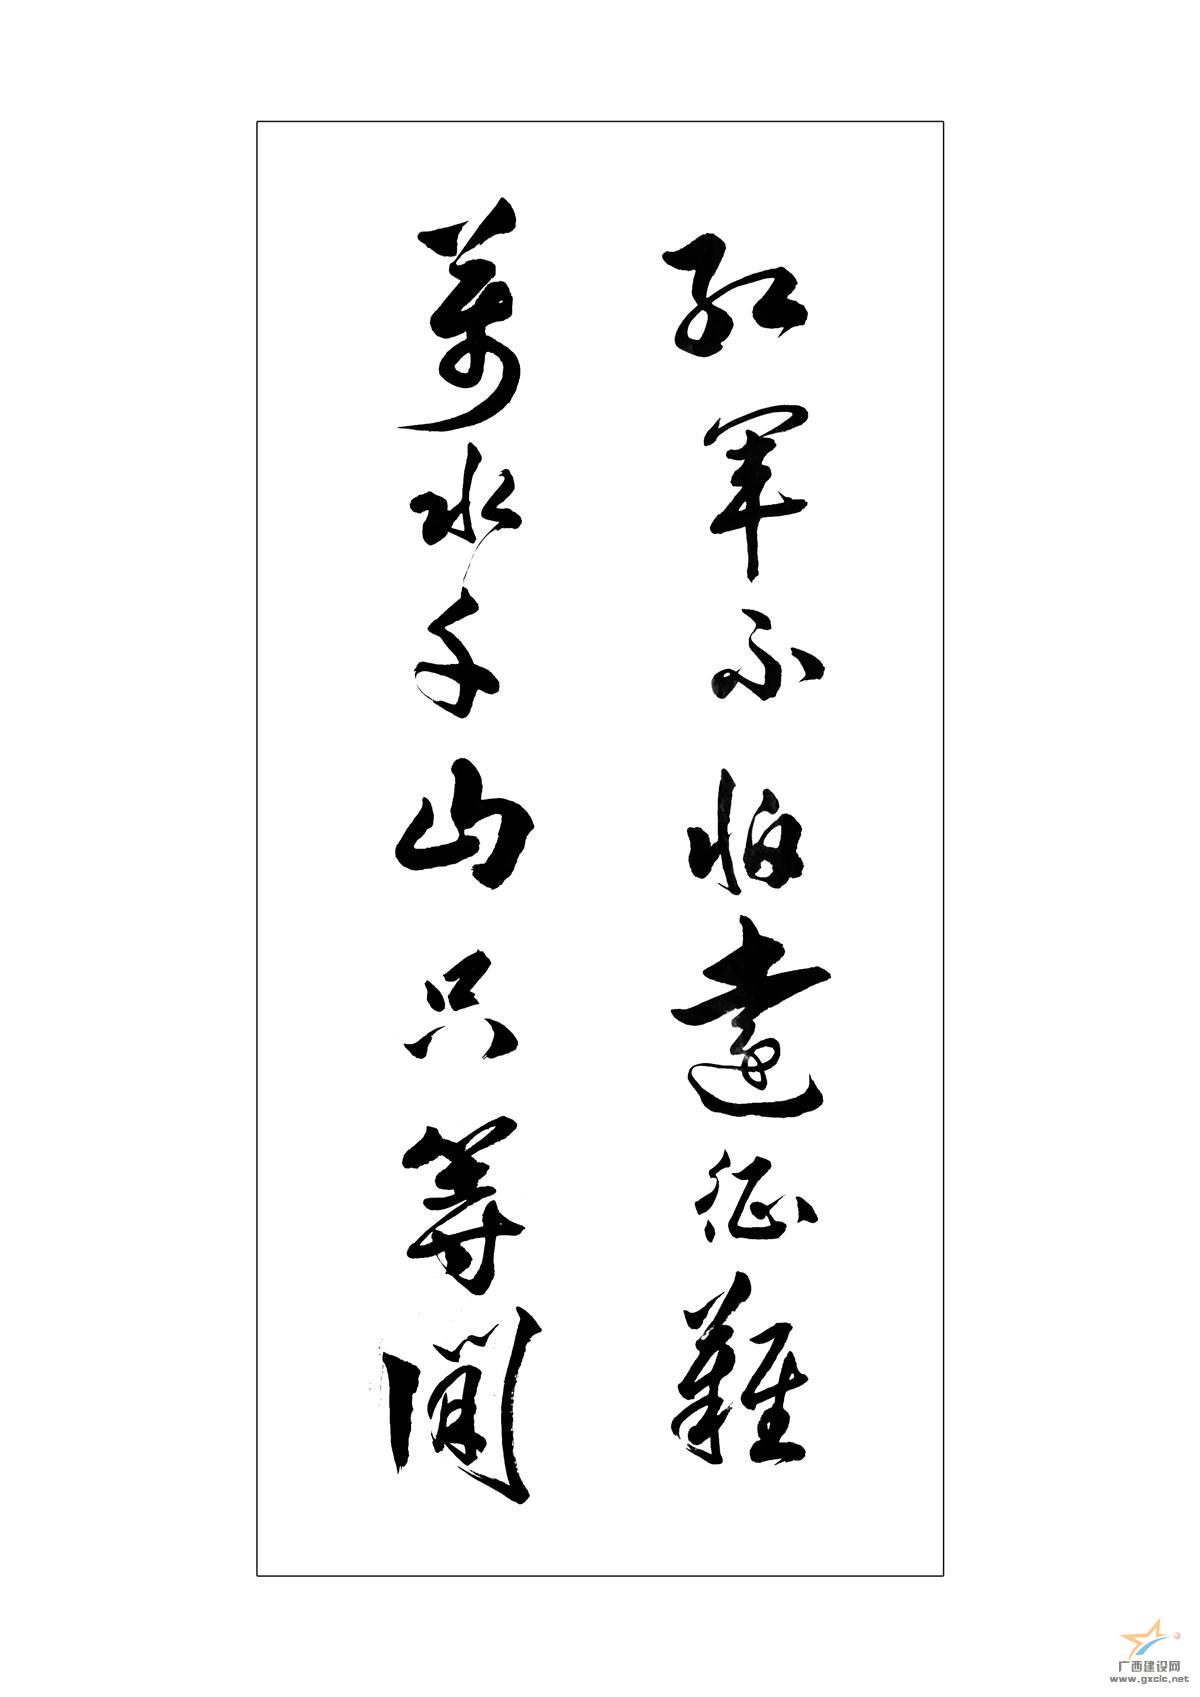 红军不怕遠征難
萬水千山只等閒
广西建设网
www.gxcic.net